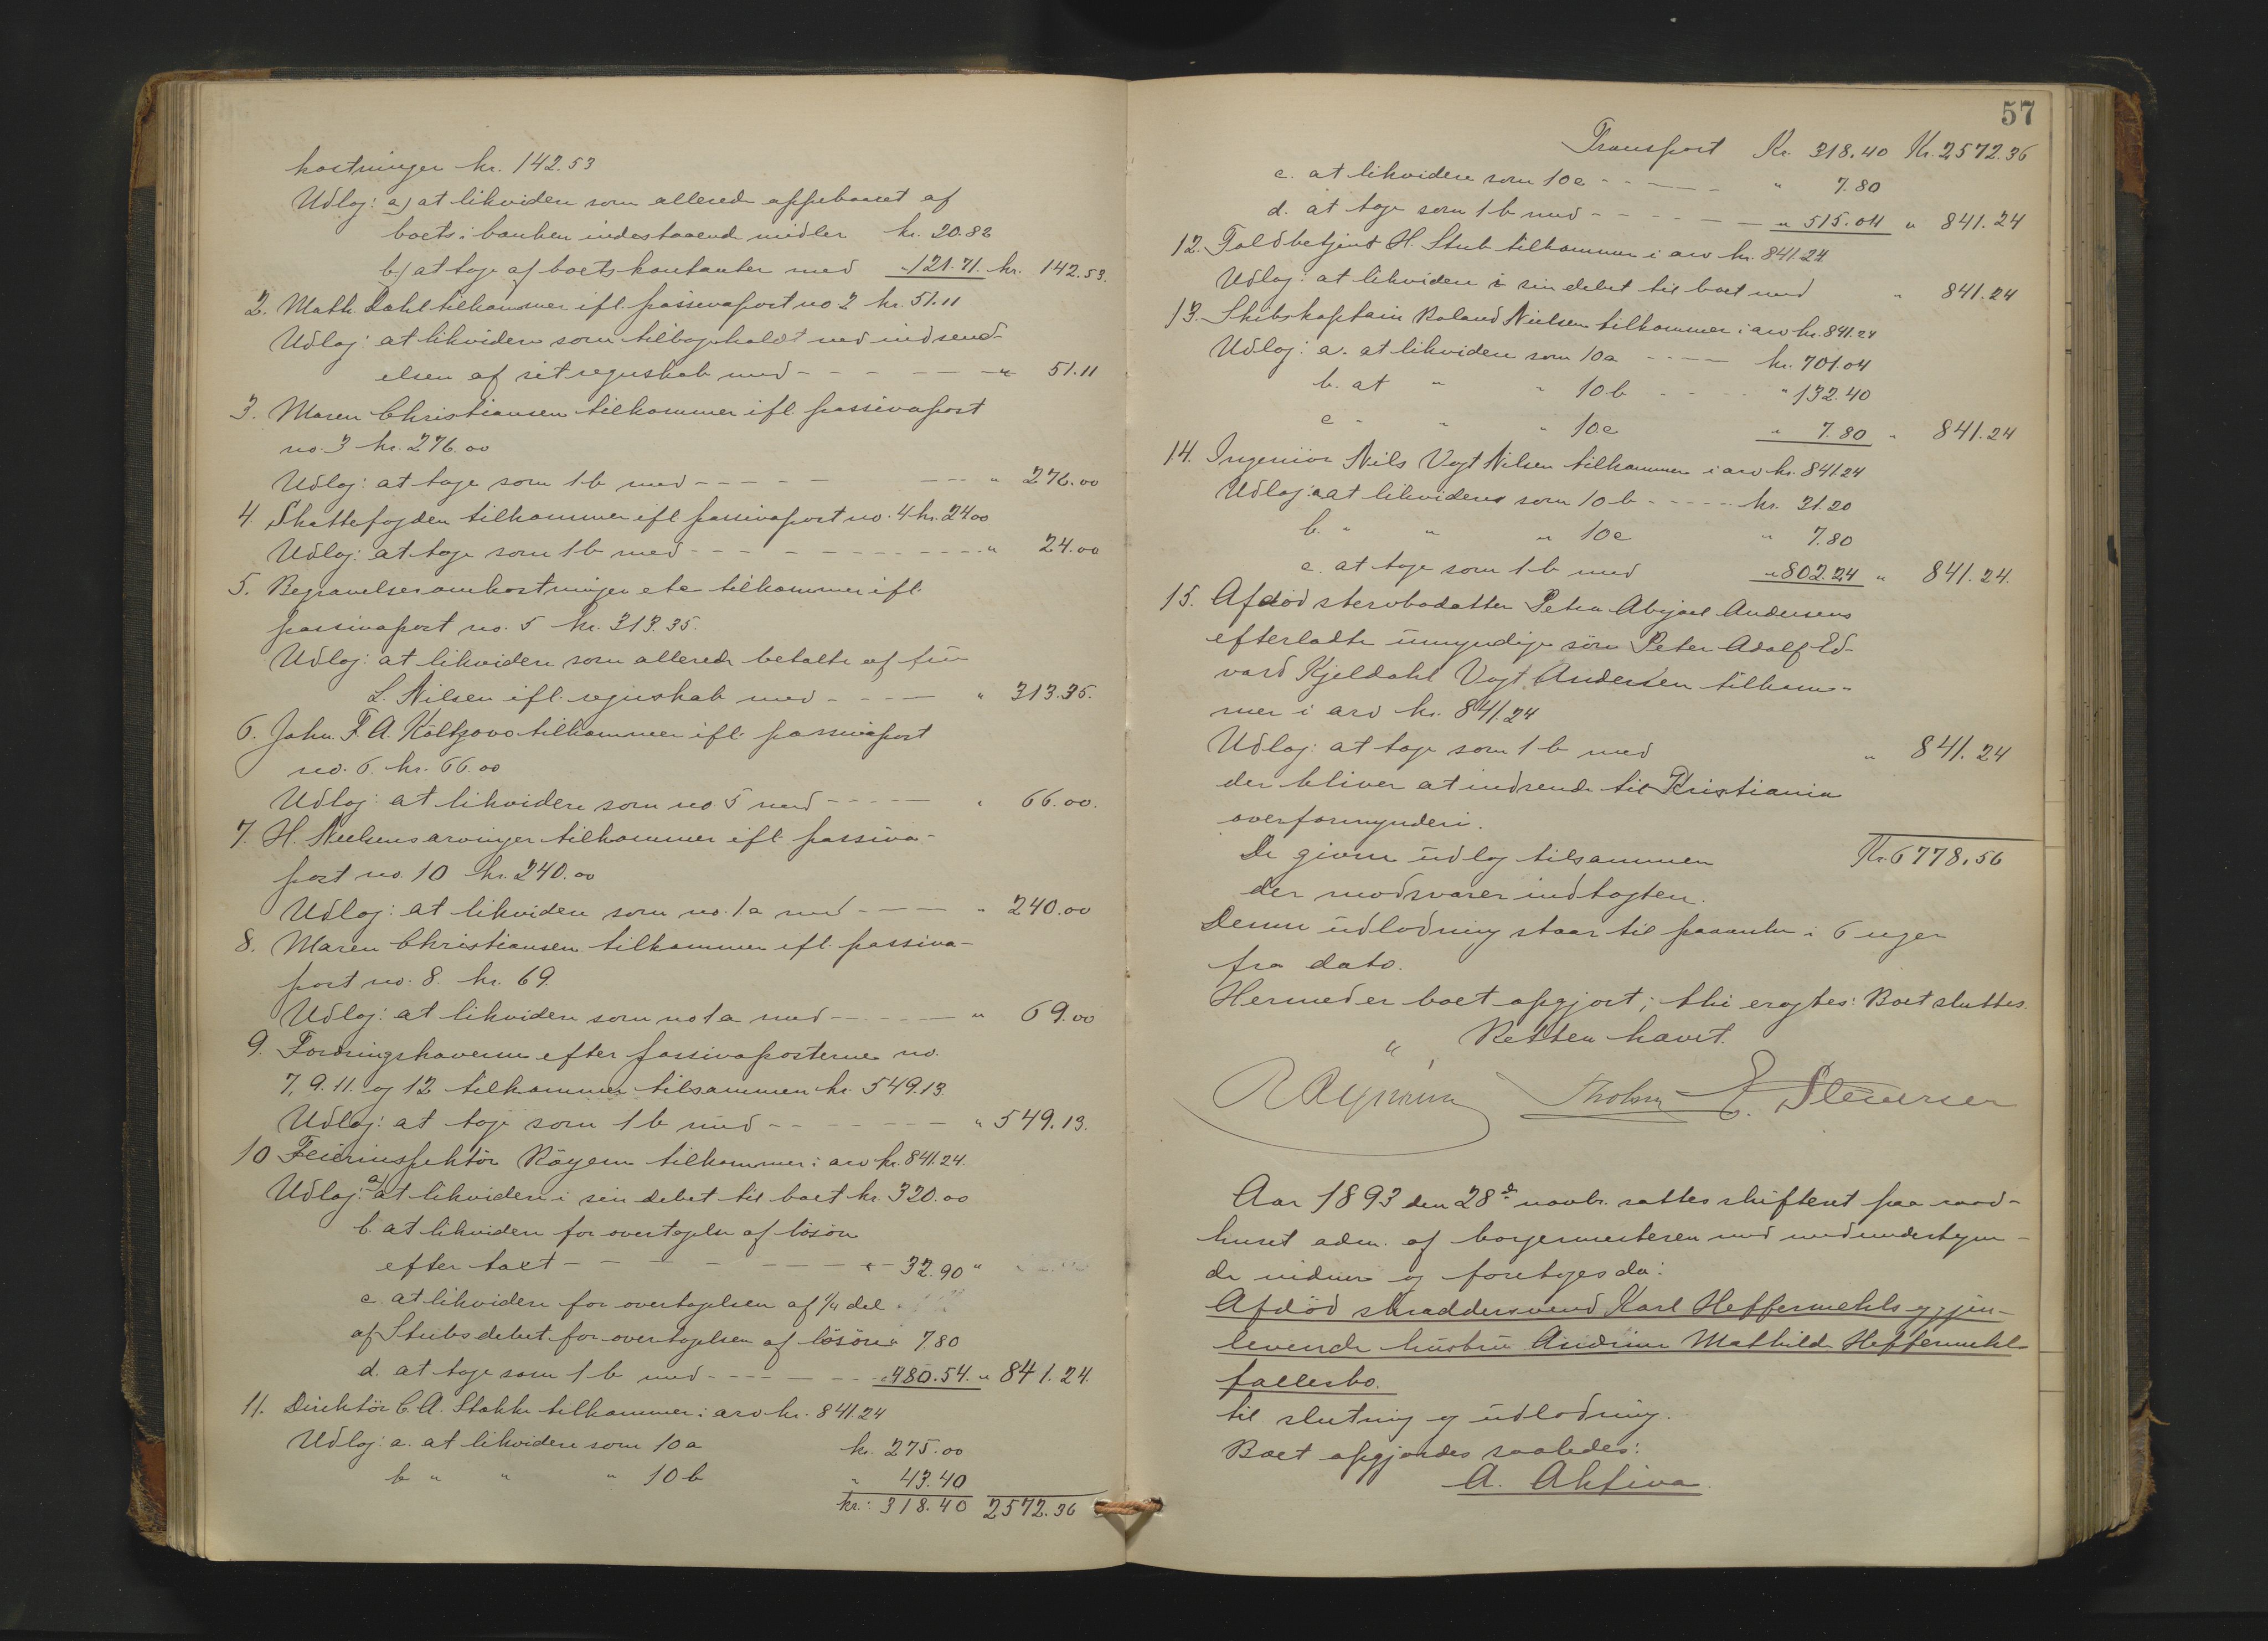 kostninger kr. 142.53
Udlæg: a) at likvidere som allerede oppebaaret af
boets i banken indestaaende midler kr. 20.82
b) at tage af boets kontanter med " 121.71. kr. 142.53.
2. Math. Dahl tilkommer ifl. passivapost no 2 kr. 51.11
Udlæg: at likvidere som tilbageholdt ved indsend-
elsen af sit regnskab med - - - - - " 51.11
3. Maren Christiansen tilkommer ifl. passivapost
no. 3 kr. 276.00
Udlæg: at tage som 1 b med - - - - - - - " 276.00
4. Skattefogden tilkommer ifl passivapost no. 4 kr. 24.00
Udlæg: at tage som 1 b med - - - - - - - - - " 24.00
5. Begravelsesomkostninger etc tilkommer ifl.
passivapost no. 5 kr. 313.35.
Udlæg: at likvidere som allerede betalte af fru
L. Nilsen ifl. regnskab med - - - " 313.35.
6. John. F. A. Koltzovs tilkommer ifl. passivapost
no. 6. kr. 66.00
Udlæg: at likvidere som no 5 med - - - - " 66.00.
7. H. Nielsens arvinger tilkommer ifl. passiva-
post no. 10 kr. 240.00
Udlæg: at likvidere som no. 1a med - - - - " 240.00
8. Maren Christiansen tilkommer ifl. passiva-
post no. 8. kr. 69.
Udlæg: at likvidere som no 1a med - - - - - " 69.00
9. Fordringshaverne efter passivaposterne no.
7, 9. 11. og 12 tilkommer tilsammen kr. 549.13.
Udlæg: at tage som 1 b med - - - - - - " 549.13.
10 Feierinspektør Röyem tilkommer i arv kr. 841.24.
Udlæg: a) at likvidere i sin debet til boet kr. 320.00
b. at likvidere for overtagelse af løsøre
efter taxt - - - - - - - " 32.90 "
c. at likvidere for overtagelsen af 1/4 del
af Stubs debet for overtagelsen af løsøre " 7.80
d. at tage som 1 b med - - - - - - " 480.54. " 841.24.
11. Direktør C. A. Stakke tilkommer i arv kr. 841.24
Udlæg: a. at likvidere som 10 a kr. 275.00
b " " " 10 b " 43.40
kr.: 318.40 2572.36
57
Transport Kr. 318.40 Kr. 2572.36
c. at likvidere som 10 c - - - - - " 7.80
d. at tage som 1 b med - - - - - - " 515.04 " 841.24
12. Toldbetjent H. Stub tilkommer i arv kr. 841.24
Udlæg: at likvidere i sin debet til boet med " 841.24
13. Skibskaptain Roland Nielsen tilkommer i arv kr. 841.24
Udlæg: a. at likvidere som 10 a - - - - kr. 701.04
b. at " " 10 b - - - - " 132.40
c " " " 10.c " 7.80 " 841.24
14. Ingeniør Nils Vogt Nilsen tilkommer i arv kr. 841.24
Udlæg: a at likvidere som 10 b - - - - - kr. 31.20
b. " " " 10 c " 7.80
c. at tage som 1 b med " 802.24 " 841.24.
15. Afdød stervbodatter Petra Abigael Andersens
efterladte umyndige søn Peter Adolf Ed-
vard Kjeldahl Vogt Andersen tilkom-
mer i arv kr. 841.24
Udlæg: at tage som 1 b med " 841.24
der bliver at indsende til Kristiania
overformynderi.
De givne udlæg tilsammen Kr. 6778.56
der modsvarer indtægten.
Denne udlodning staar til paaanke i 6 uger
fra dato.
Hermed er boet opgjort; thi eragtes: Boet sluttes.
" Retten hævet.
E. Steensen
Aar 1893 den 28de novbr. sattes skifteret paa raad-
huset adm. af borgermesteren med medundertegne-
de vidner og foretoges da:
Afdød skræddersvend Karl Heffermehls og gjen-
levende hustru Andrine Mathilde Heffermehls
fællesbo.
til slutning og udlodning.
Boet opgjordes saaledes:
A. Aktiva.